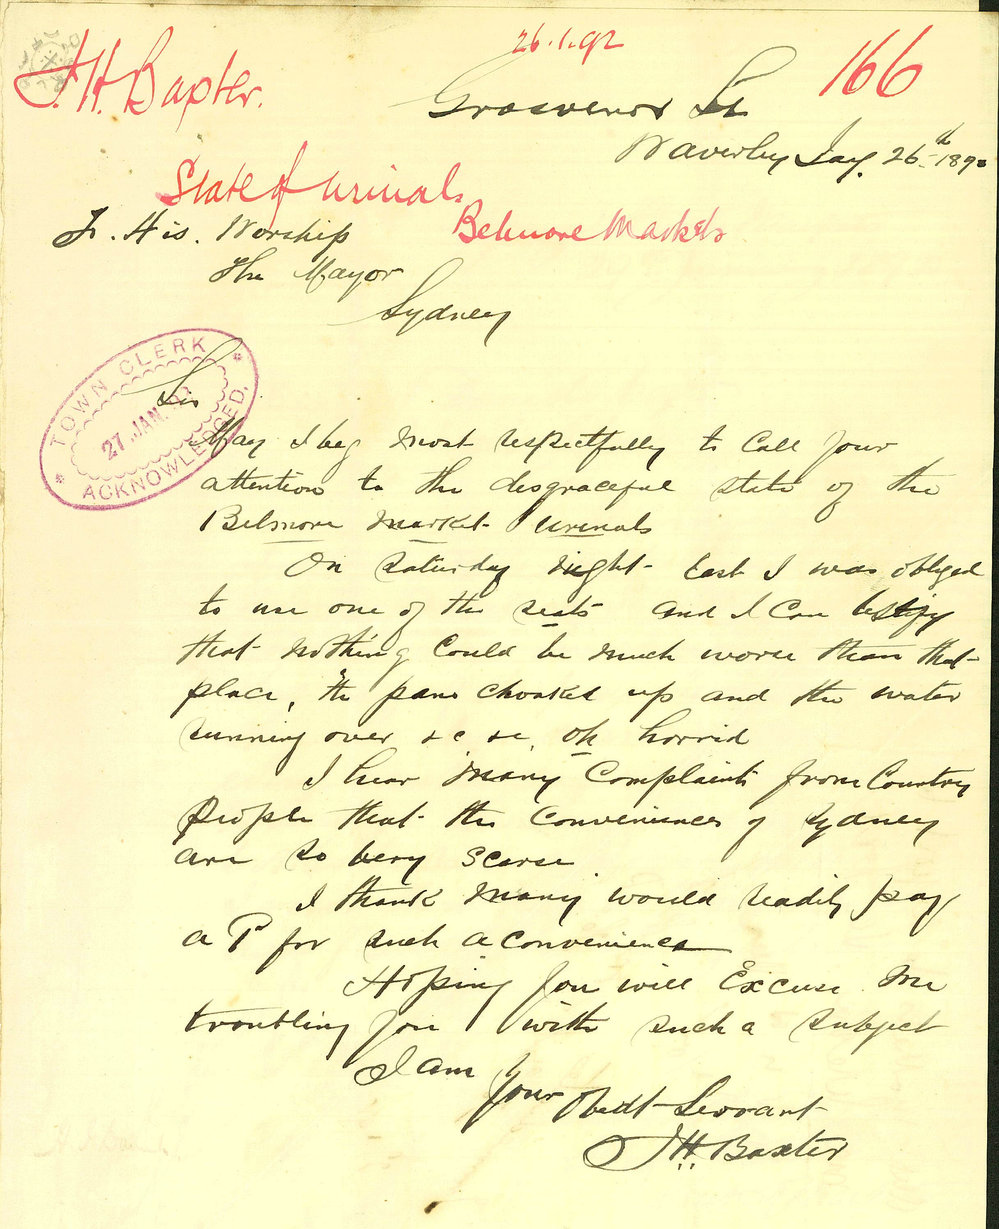 26.1.92
166
J. H. Baxter.
Grosvenor St
Waverley Jay. 26th 189
State of Urinals
Belmore Markets
To. His. Worship
The Mayor
Sydney
TOWN CLERK
27 JAN.
ACKNOWLEDGED.
Sir
May I beg most respectfully to Call your
attention to the disgraceful state of the
Belmore Market Urinals
On Saturday night last I was obliged
to use one of the seats and I can testify
that nothing could be much worse than that
place, the pans choaked up and the water
running over &c &c, oh horrid
I hear many Complaints from Country
People that the Conveniences of Sydney
are so very scarse
I thank many would readily pay
a 1d for such a convenience
Hoping you will Excuse me
troubling you with such a subject
I am
Your Obedt Servant
J H Baxter